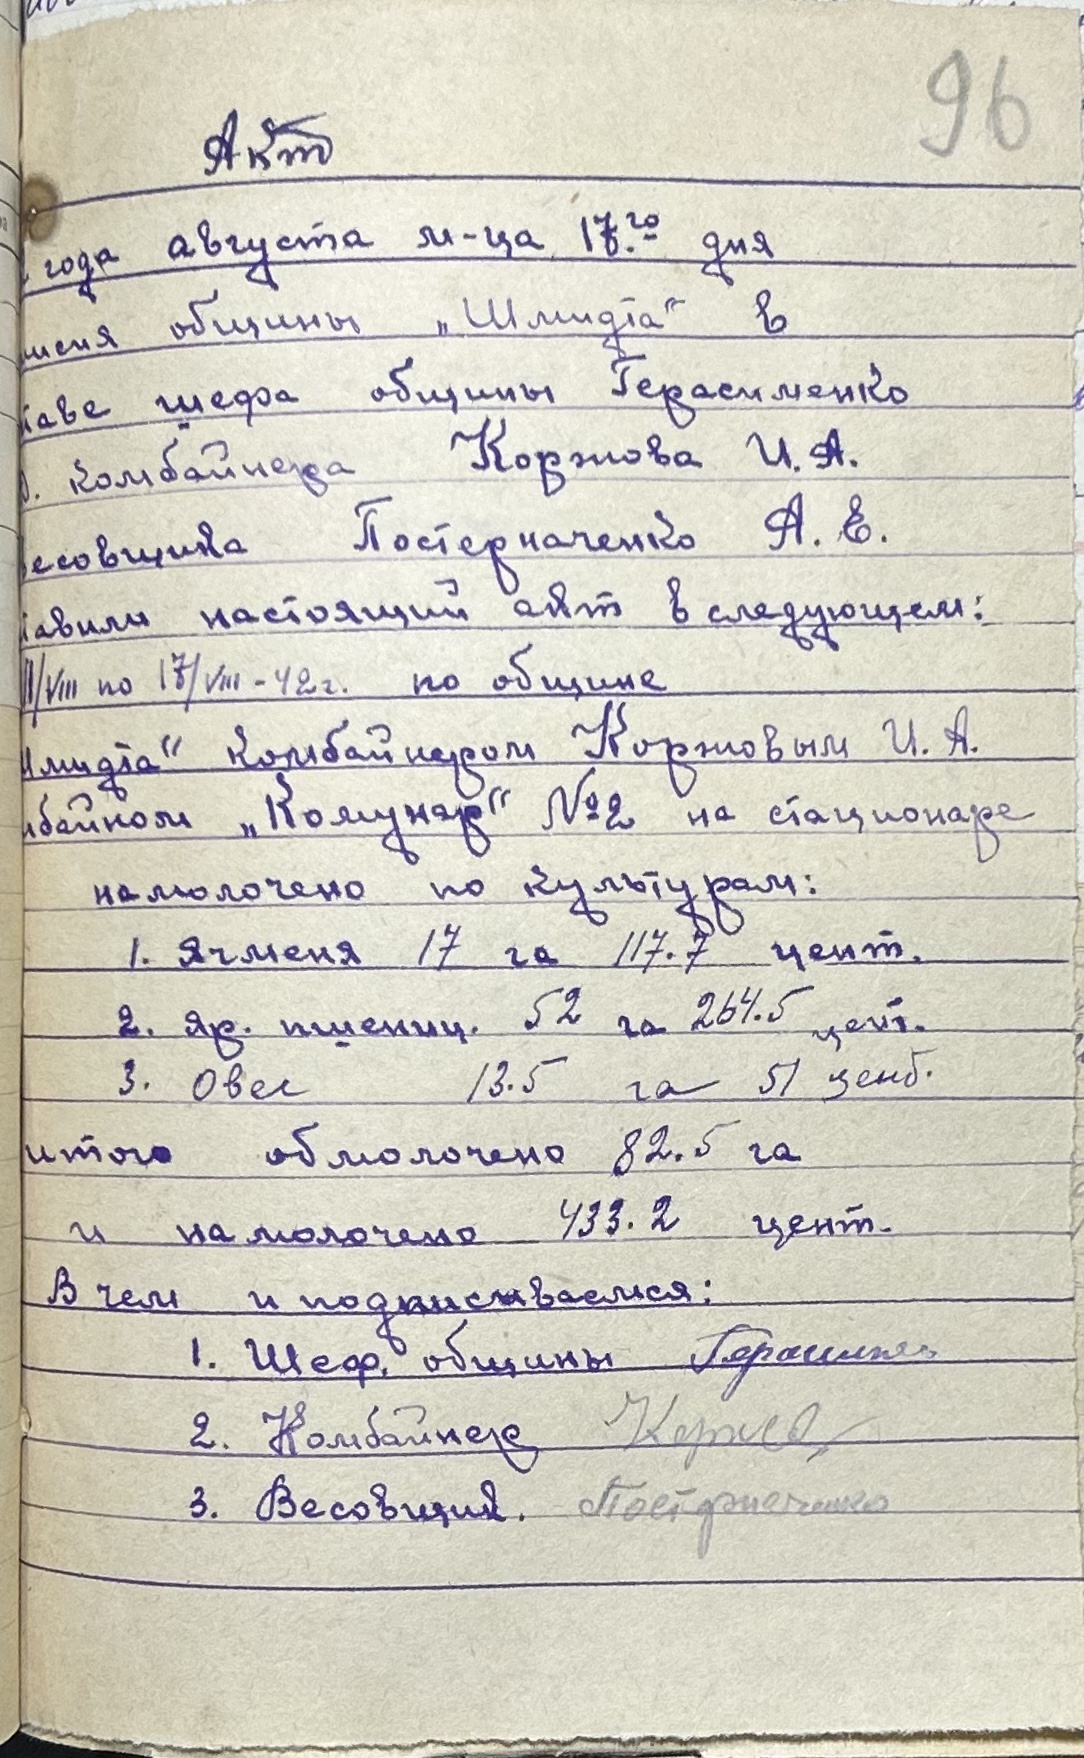 96
Акт
года августа м-ца 17.го дня
миссия общины „Шмидта" в
таве шефа общины Герасименко
комбайнера Коржова И. А.
весовщика Постерначенко А. Е.
тавили настоящий акт в следующем:
11/VIII по 17/VIII-42г. по общине
Шмидта" комбайнером Коржовым И. А.
мбайном „Комунар" №2 на стационаре
намолочено по культурам:
1. Ячменя 17 га 117.7 цент.
2. яр. пшениц. 52 га 264.5 цент.
3. Овес 13.5 га 51 цент.
итого обмолочено 82.5 га
и намолочено 433.2 цент.
В чем и подписываемся:
1. Шеф. общины Герасимен
2. Комбайнер Коржов
3. Весовщик. Постерначенко